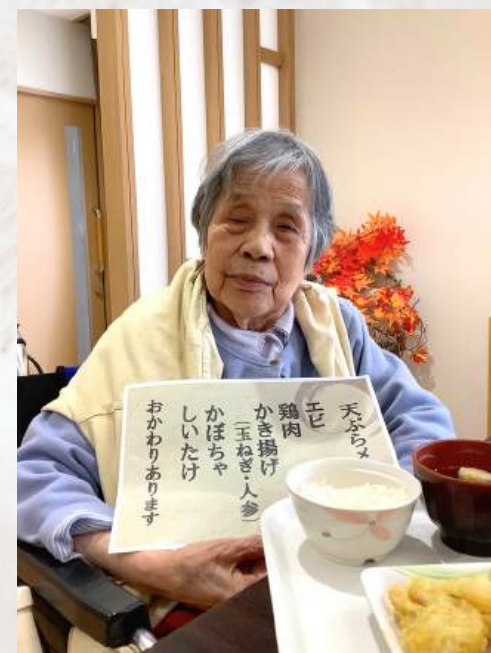 天ぷらメ
エビ
鶏肉
かき揚げ
（玉ねぎ・人参）
かぼちゃ
しいたけ
おかわりあります